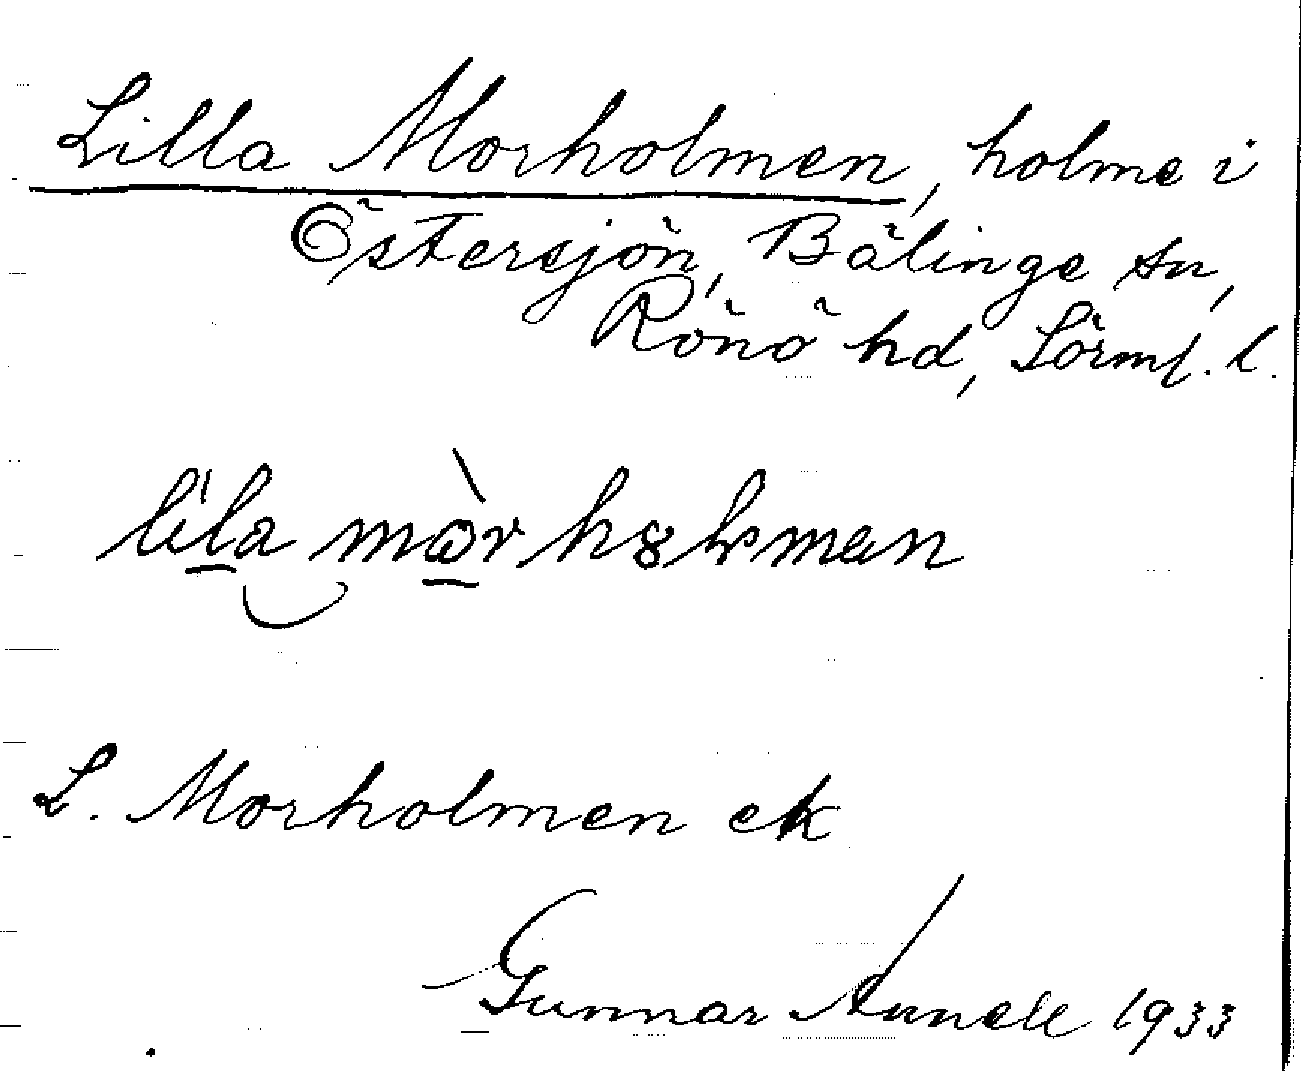 Lilla Morholmen, holme i
Östersjön, Bälinge sn,
Rönö hd, Sörml. l.
L. Morholmen ek
Gunnar Annell 1933